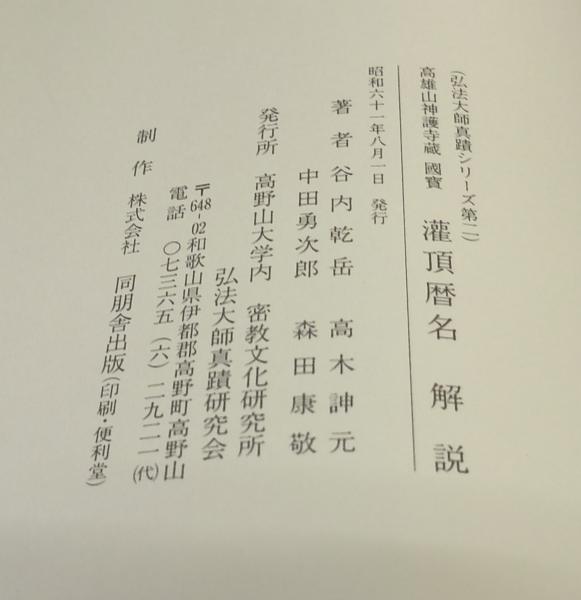 (弘法大師真蹟シリーズ第二)
高雄山神護寺蔵 國寶 灌頂暦名 解説
昭和六十一年八月一日 発行
著者 谷内乾岳 高木訷元
中田勇次郎 森田康敬
発行所 高野山大学内 密教文化研究所
弘法大師真蹟研究会
〒648-02 和歌山県伊都郡高野町高野山
電話 〇七三六五(六)二九二一(代)
制作 株式会社 同朋舎出版(印刷・便利堂)